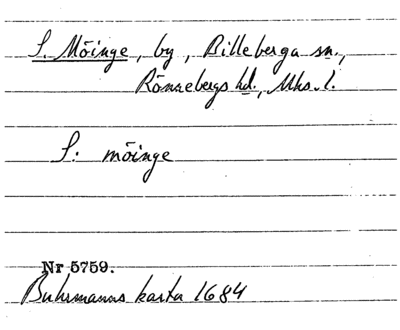 S. Möinge, by, Billeberga sn.,
Rönnebergs hd., Mhs. l.
S: möinge
Nr 5759.
Buhrmanns karta 1684